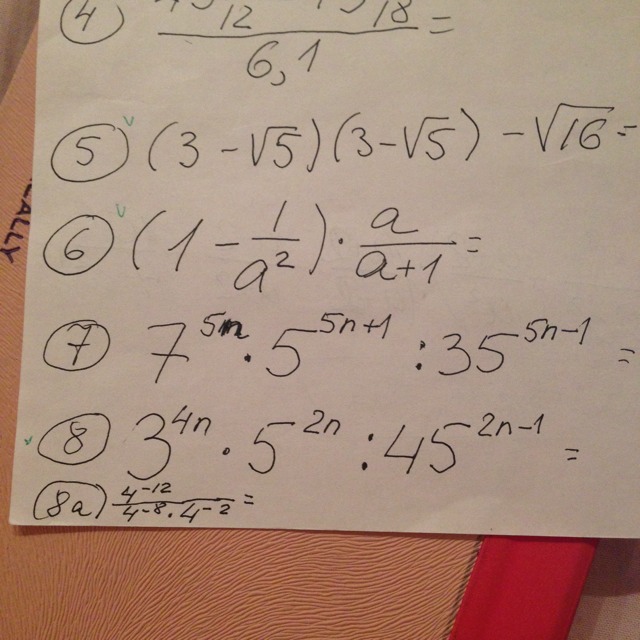 ④ 12 18 =
6,1
⑤ (3 - √5)(3 - √5) - √16 =
⑥ (1 - 1/a²) · a/(a+1) =
⑦ 7^(5n) · 5^(5n+1) : 35^(5n-1) =
⑧ 3^(4n) · 5^(2n) : 45^(2n-1) =
(8a) 4^(-12)/(4^(-8) · 4^(-2)) =